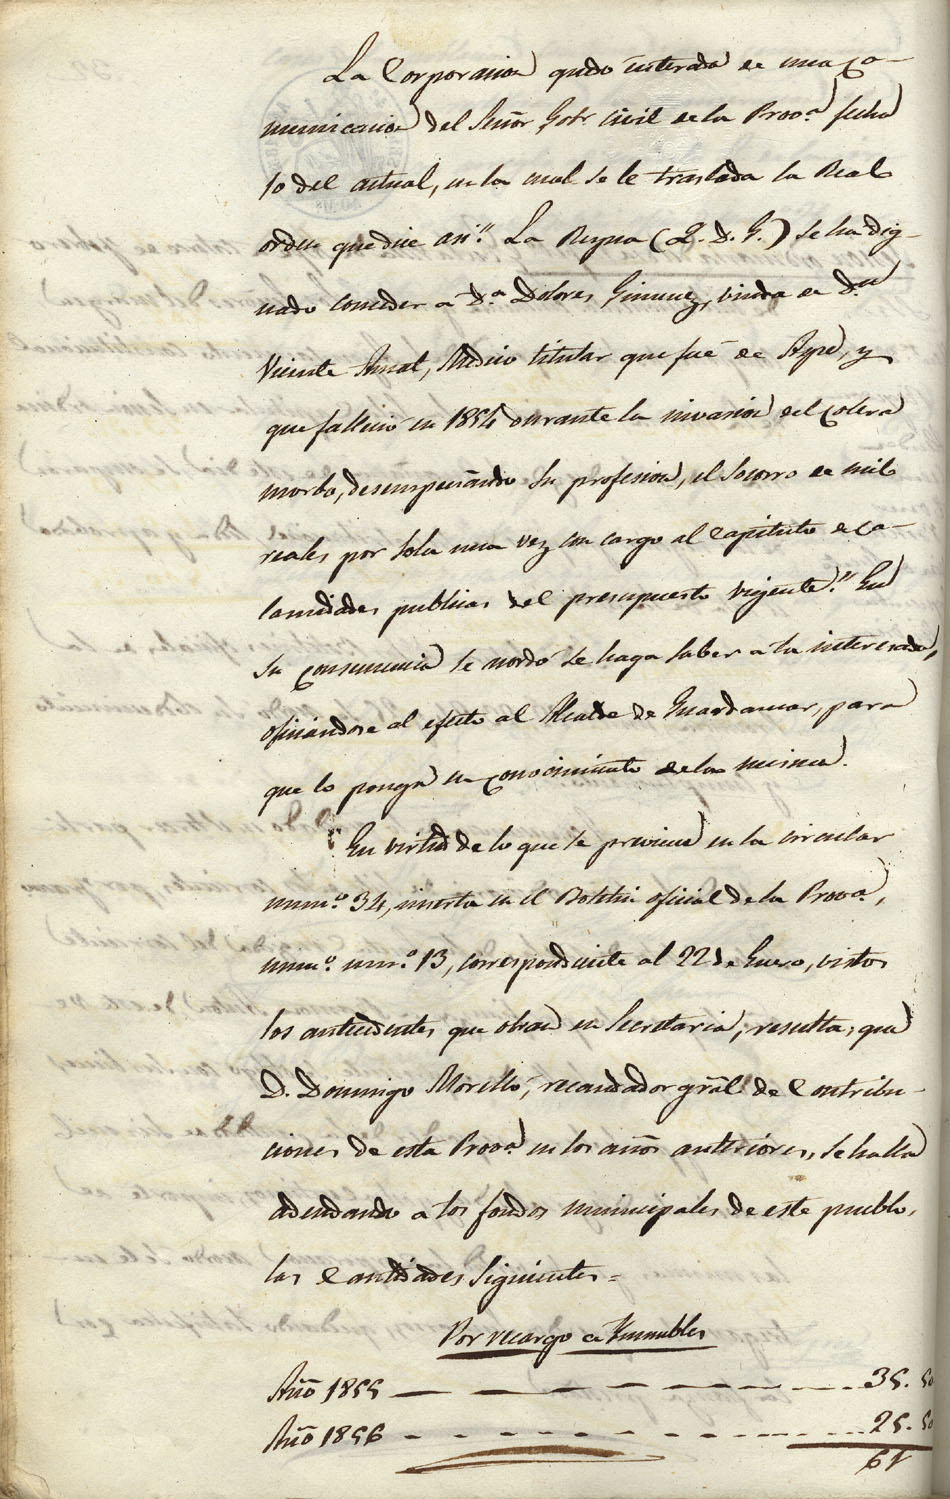 La Corporacion quedo enterada de una co-
municacion del Señor Gobr Civil de la Provª fecha
10 del actual, en la cual se le traslada la Real
orden que dice asi." La Reyna (Q. D. G.) se ha dig-
nado conceder a Dª Dolores Gimenez, viuda de Dn
Vicente Amat, Medico titular que fué de Aspe, y
que fallecio en 1854 durante la invasion del colera
morbo, desempeñando su profesion, el socorro de mil
reales por sola una vez con cargo al Capitulo de ca-
lamidades publicas del presupuesto vigente." En
su consecuencia se acordó se haga saber a la interesada,
oficiándose al efecto al Alcalde de Guardamar, para
que lo ponga en conocimiento de la misma.
En virtud de lo que se previene en la circular
numº 34, inserta en el Boletin oficial de la Provª,
numº 13, correspondiente al 22 de Enero, vistos
los antecedentes que obran en Secretaria, resulta, que
D. Domingo Morelló, recaudador gral de Contribu-
ciones de esta Provª en los años anteriores, se halla
adeudando a los fondos municipales de este pueblo,
las Cantidades siguientes =
Por recargo a Ynmuebles
Año 1855 — — — — 35. 50
Año 1856 - - - - - 25. 50
61